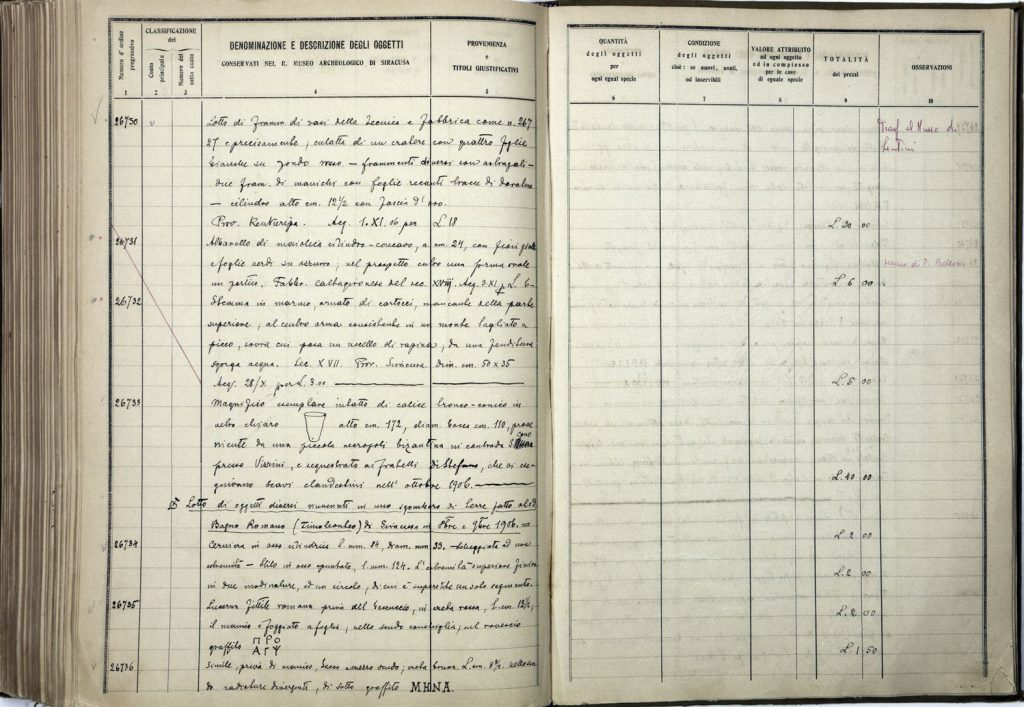 Numero d'ordine progressivo
CLASSIFICAZIONE
del
Conto principale
Numero del sotto conto
DENOMINAZIONE E DESCRIZIONE DEGLI OGGETTI
CONSERVATI NEL R. MUSEO ARCHEOLOGICO DI SIRACUSA
PROVENIENZA
e
TITOLI GIUSTIFICATIVI
1 2 3 4 5
26730 Lotto di framm. di vasi della tecnica e fabbrica come n. 267
27 e precisamente; culatta di un cratere con quattro foglie
bianche su fondo roseo - frammenti diversi con astragali -
due fram. di manichi con foglie recanti tracce di doratura
- cilindro alto cm. 12½ con fascia d'oro.
Prov. Kentoripa. Acq. 1.XI.06 per L. 18
26731 Albarello di maiolica cilindro-concavo, a cm. 24, con fiori gialli
e foglie verdi su azzurro; nel prospetto entro una forma ovale
un Fabbr. caltagironese del sec. XVIII. Acq. 3.XI p. L. 6-
26732 Stemma in marmo, ornato di cartocci, mancante della parte
superiore; al centro arma consistente in un monte tagliato a
picco, sovra cui posa un uccello di rapina; da una fenditura
sgorga acqua. Sec. XVII. Prov. Siracusa. Dim. cm. 50 x 35
Acq. 28/X per L. 3.00
26733 Magnifico esemplare intatto di calice tronco-conico in
vetro chiaro alto cm. 172, diam. bocca cm. 110, prove
niente da una piccola necropoli bizantina in contrada
presso Vizzini, e sequestrato ai fratelli Di Stefano, che vi es-
guivano scavi clandestini nell'ottobre 1906.
Lotto di oggetti diversi rinvenuti in uno sgombero di terre fatto al cd
Bagno Romano (Timoleonteo) di Siracusa in 8bre e 9bre 1906. =
26734 Cerniera in osso cilindrica l. mm. 84, diam. mm 33. - scheggiata ad una
estremità - Stilo in osso spuntato, l. mm. 124. L'estremità superiore finisce
in due modinature, ed un circolo, di cui è superstite un solo segmento.
26735 Lucerna fittile romana priva del beccuccio, in creta rossa, l. cm. 12½;
il manico è foggiato a foglia; nello scudo conchiglia; nel rovescio
graffito ΠΡΟ
ΑΓΨ
26736 Simile, priva di manico, becco e mezzo scudo; creta L. cm. 8½ nello scu
do radiature divergenti, di sotto graffito ΜΗΝΑ.
QUANTITÀ
degli oggetti
per
ogni egual specie
CONDIZIONE
degli oggetti
cioè: se nuovi, usati,
od inservibili
VALORE ATTRIBUITO
ad ogni oggetto
ed in complesso
per le cose
di eguale specie
TOTALITÀ
dei prezzi
OSSERVAZIONI
6 7 8 9 10
Trasf. al Museo di
Lentini
L. 20 00
Museo di P. Bellomo
L. 6 00
L. 5 00
L. 40 00
L. 2 00
L. 2 00
L. 2 00
L. 1 50